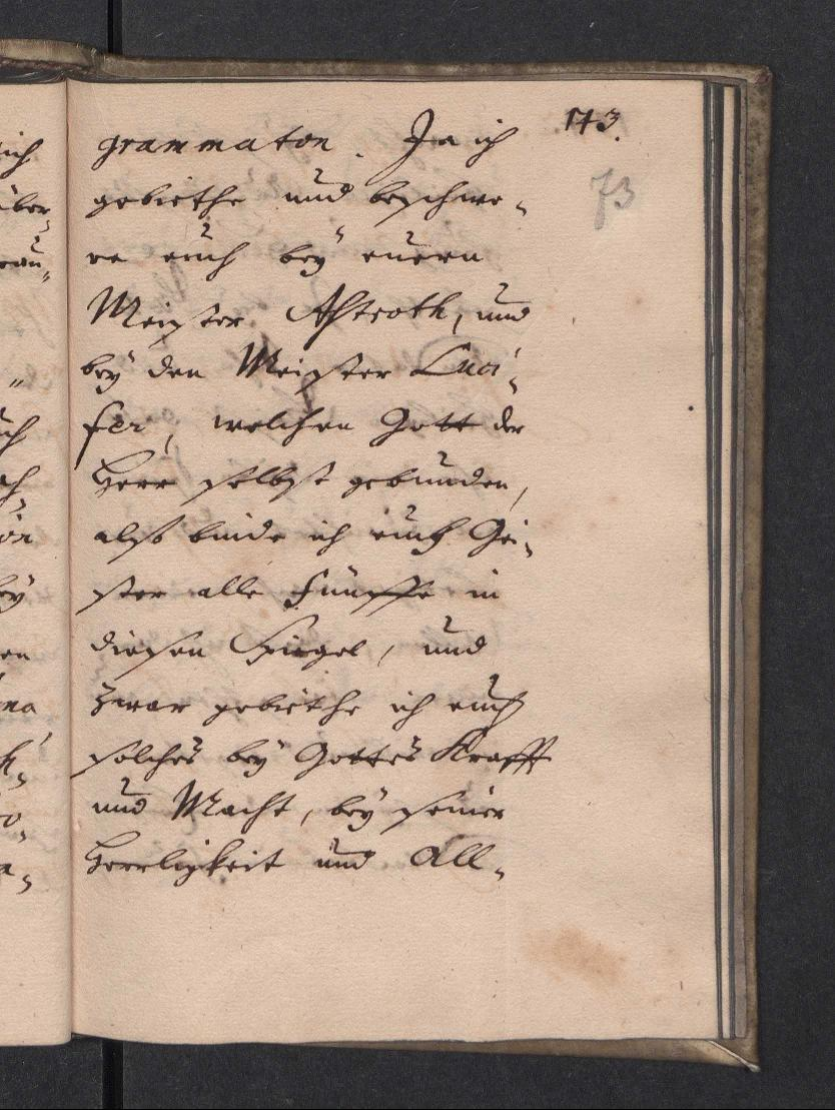 143.
73
grammaton. Ja ich
gebiethe und beschwe-
re euch beÿ euern
Meister Astroth, und
beÿ den Meister Luci-
fer, welchen Gott der
Herr selbst gebunden,
also binde ich euch Gei-
ster alle Fünffe in
diesen Spiegel, und
zwar gebiethe ich euch
solches beÿ Gottes Krafft
und Macht, beÿ seiner
Herrligkeit und All-